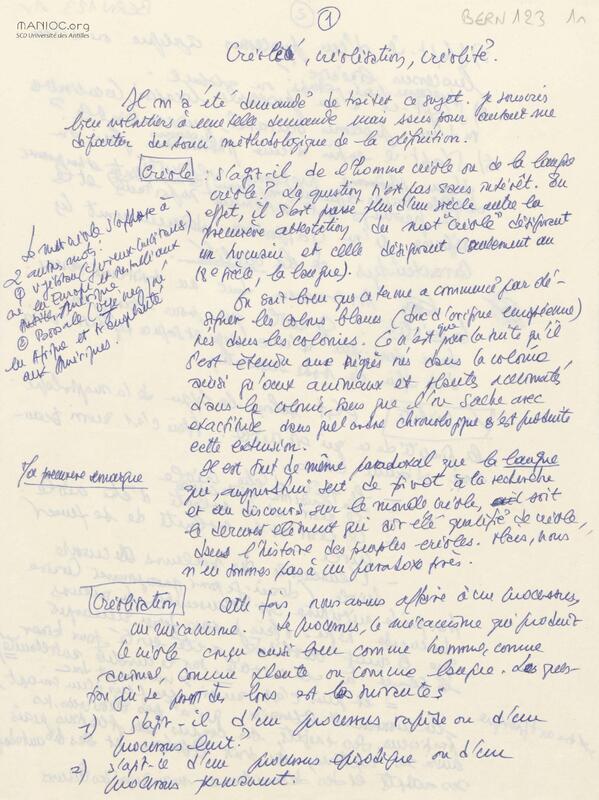 MANIOC.org
SCD Université des Antilles
BERN 123 1r
1
Créole, créolisation, créolité.
Il m'a été demandé de traiter ce sujet. Je souscris
bien volontiers à une telle demande mais sans pour autant me
départir du souci méthodologique de la définition.
Créole : s'agit-il de l'homme créole ou de la langue
créole? La question n'est pas sans intérêt. En
effet, il s'est passé plus d'un siècle entre la
première attestation du mot "créole" désignant
un humain et celle désignant (seulement au
siècle, la langue).
Le mot créole s'oppose à
2 autres mots:
① (vieux
né en Europe et
② Bossale (nègre né
en Afrique et transplanté
aux Amériques.
On sait bien que ce terme a commencé par dé-
signer les colons blancs (donc d'origine européenne)
nés dans les colonies. Ce n'est que par la suite qu'il
s'est étendu aux nègres nés dans la colonie
ainsi qu'aux animaux et plantes acclimatés
dans la colonie, sans que l'on sache avec
exactitude dans quel ordre chronologique s'est produite
cette extension.
première remarque
Il est tout de même paradoxal que la langue
qui, aujourd'hui sert de pivot à la recherche
et au discours sur le monde créole, soit
le dernier élément qui ait été qualifié de créole,
dans l'histoire des peuples créoles. Mais, nous
n'en sommes pas à un paradoxe près.
Créolisation Cette fois, nous avons affaire à un processus,
un mécanisme. Le processus, le mécanisme qui produit
le créole conçu aussi bien comme homme, comme
animal, comme plante ou comme langue. La ques-
tion qui se pose dès lors est la suivante
1) s'agit-il d'un processus rapide ou d'un
processus lent?
2) s'agit-il d'un processus épisodique ou d'un
processus permanent.